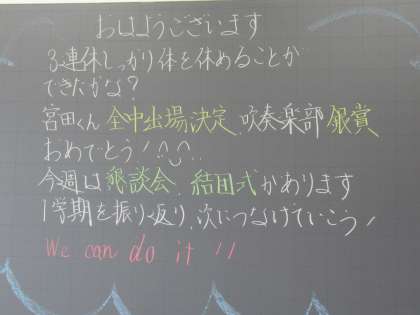 おはようございます
3連休しっかり体を休めることが
できたかな?
宮田くん全中出場決定、吹奏楽部銀賞
おめでとう!
今週は懇談会、結団式があります
1学期を振り返り、次につなげていこう!
We can do it!!